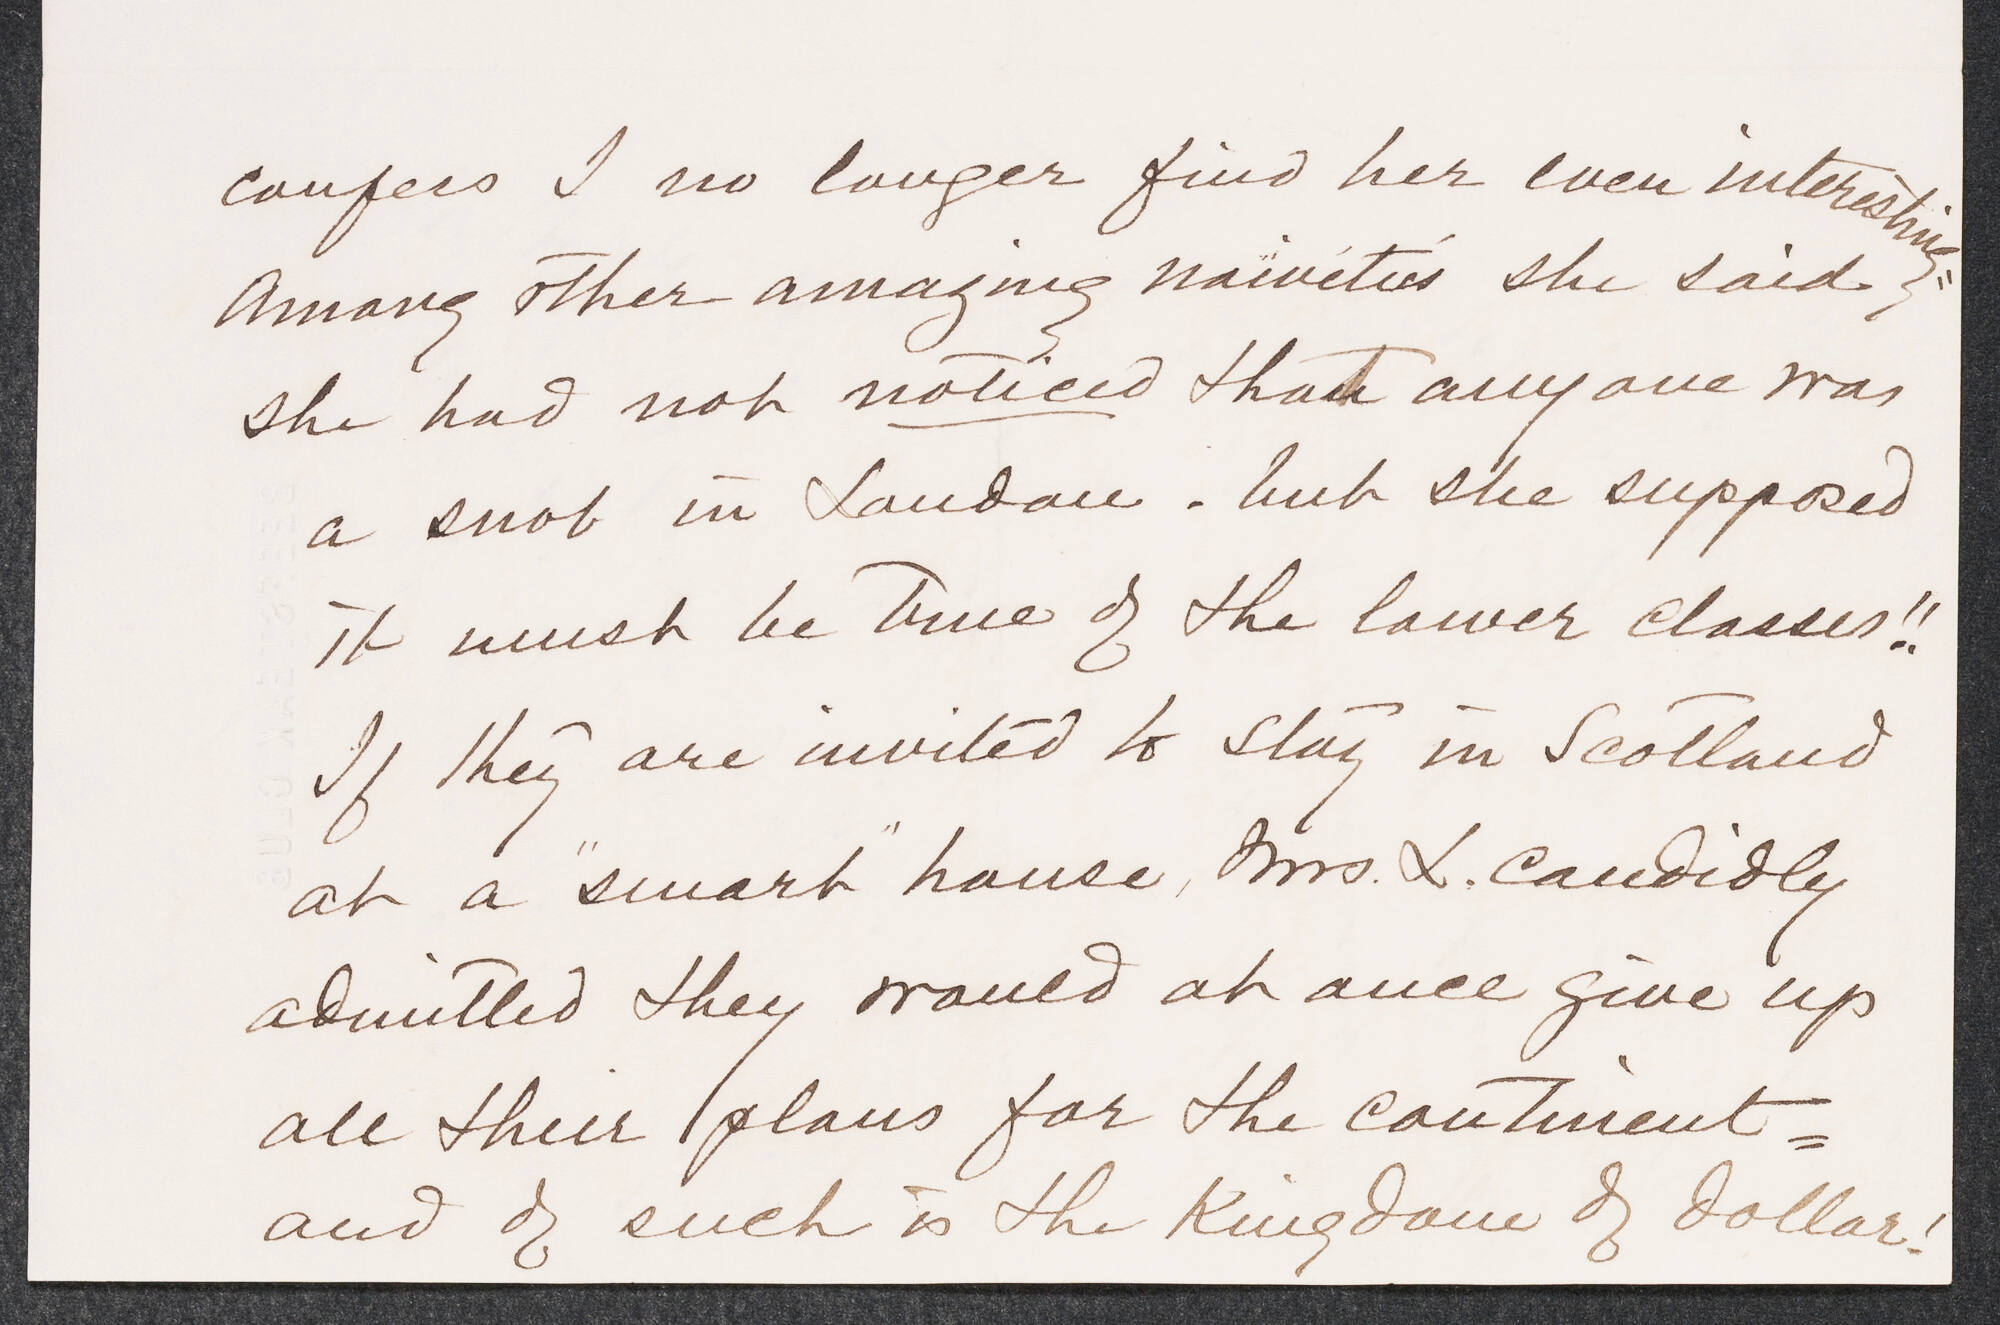 confess I no longer find her even interesting=
Among other amazing naïvetés she said
she had not noticed that anyone was
a snob in London. but she supposed
it must be true of the lower classes!!
If they are invited to stay in Scotland
at a "smart" house, Mrs. L. candidly
admitted they would at once give up
all their plans for the continent=
and of such is the Kingdom of Dollar!